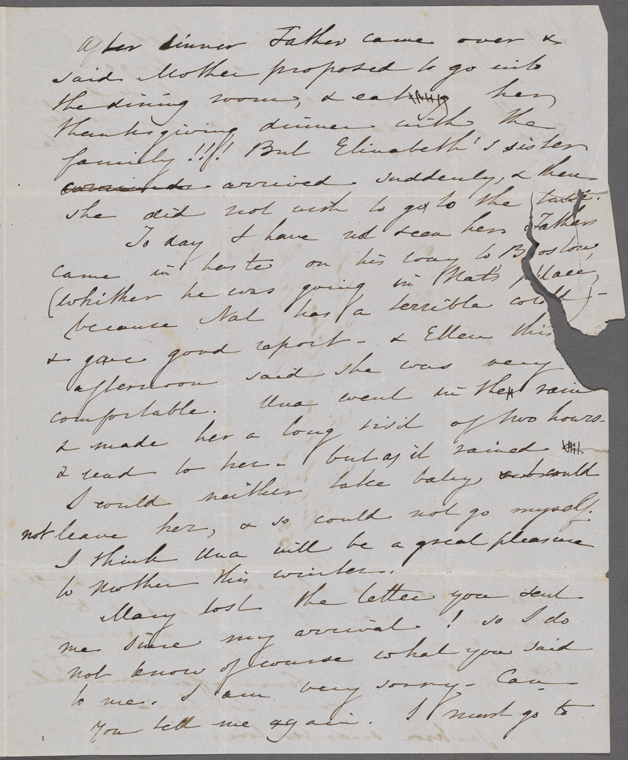 After dinner Father came over &
said Mother proposed to go into
the dining room, & eat her
thanksgiving dinner with the
family!!!! But Elizabeth's sister
arrived suddenly, & then
she did not wish to go to the table.
To day I have not seen her. Father
came in haste on his way to Boston,
(whither he was going in Nat's place,
because Nat has a terrible cold) -
& gave good report - & Ellen this
afternoon said she was very
comfortable. Una went in the rain
& made her a long visit of two hours -
& read to her - but as it rained
I could neither take baby, & could
not leave her, & so could not go myself.
I think Una will be a great pleasure
to Mother this winter.
Mary lost the letter you sent
me since my arrival! so I do
not know of course what you said
to me. I am very sorry - Can
you tell me again. I must go to